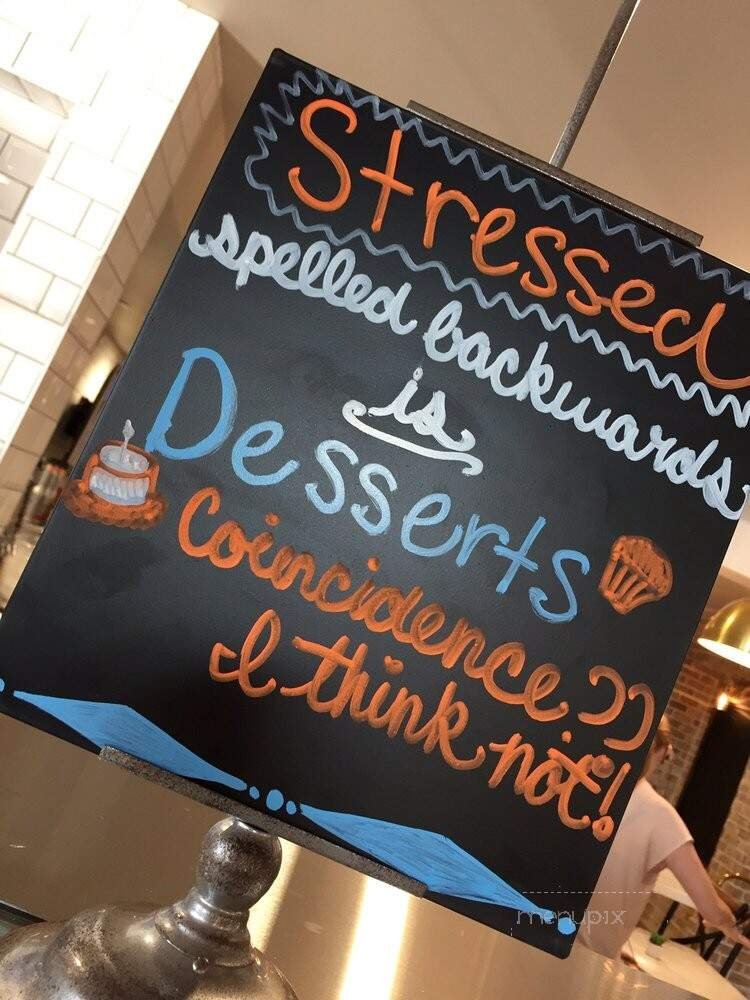 Stressed
spelled backwards
is
Desserts
Coincidence??
I think not!
menupix